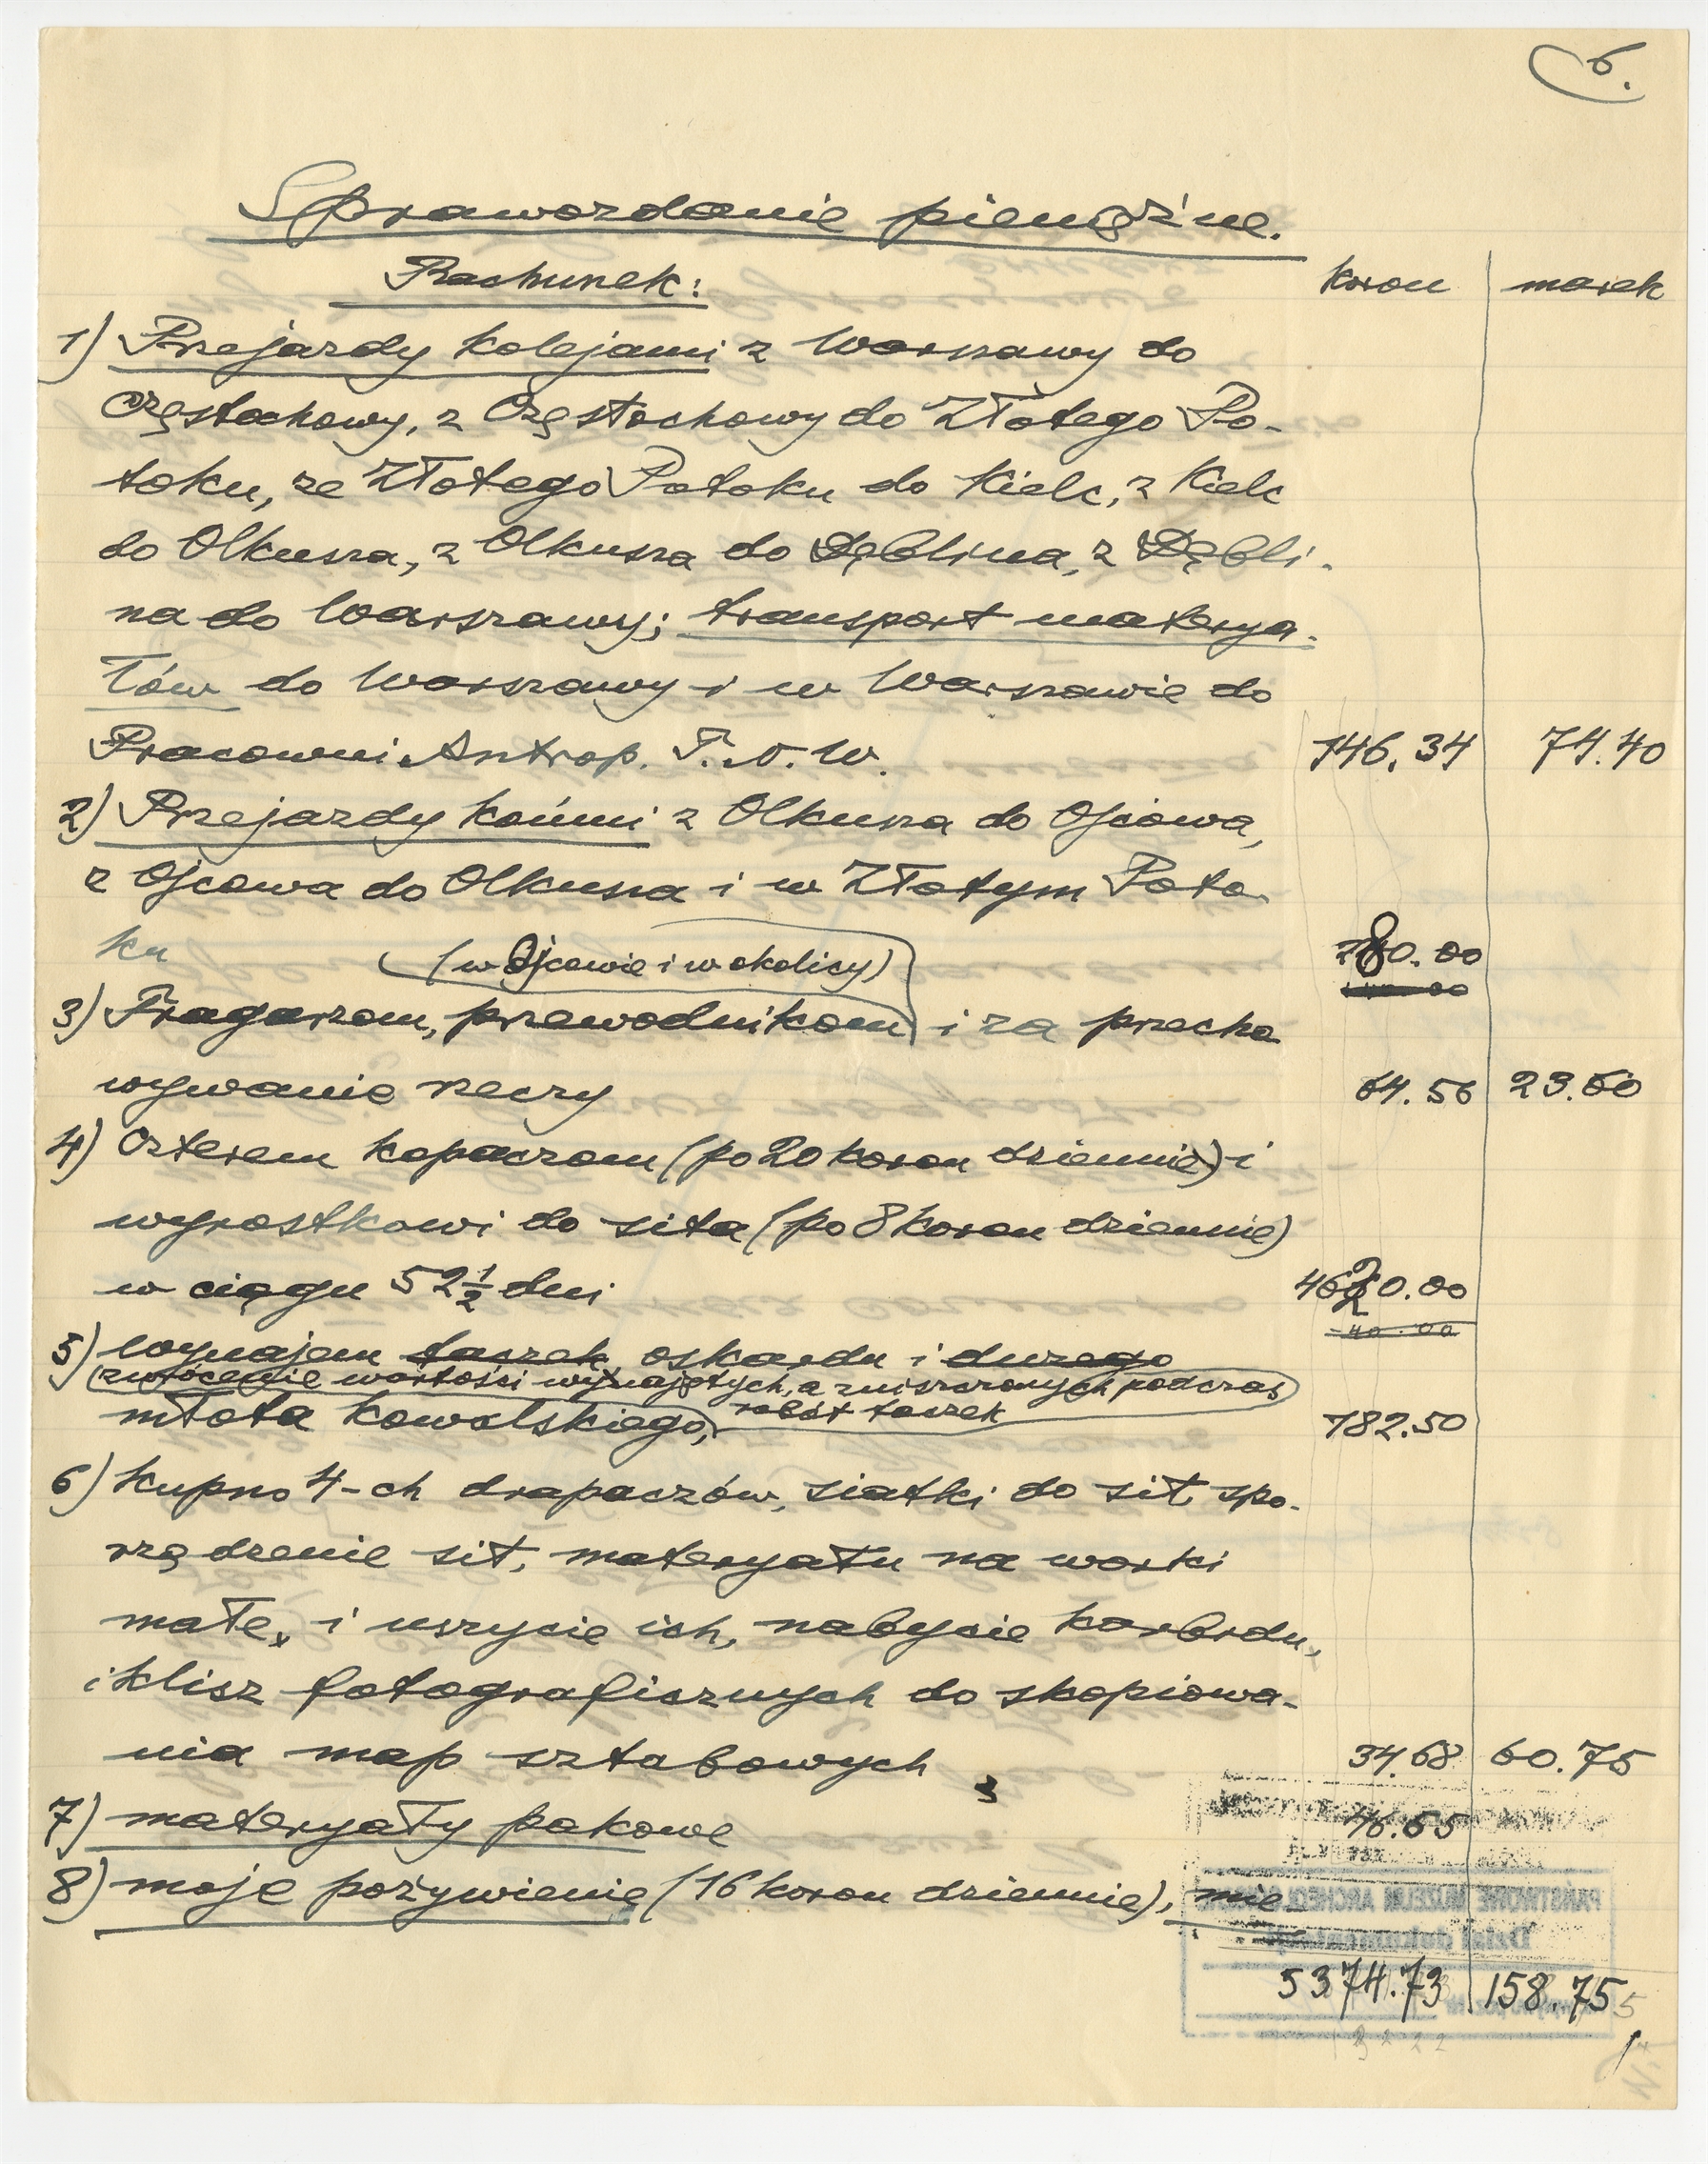 6.
Sprawozdanie pieniężne.
Rachunek:
koron marek
1) Przejazdy kolejami z Warszawy do
Częstochowy, z Częstochowy do Złotego Po-
toku, ze Złotego Potoku do Kielc, z Kielc
do Olkusza, z Olkusza do Dęblina, z Dębli-
na do Warszawy; transport materya-
łów do Warszawy i w Warszawie do
Pracowni Antrop. T. N. W. 146.34 74.40
2) Przejazdy końmi z Olkusza do Ojcowa,
z Ojcowa do Olkusza i w Złotym Poto-
ku
(w Ojcowie i w okolicy)
3) Tragarzom, przewodnikom i za przecho
wywanie rzeczy 64.56 23.60
4) Czterem kopaczom (po 20 koron dziennie) i
wyrostkowi do sita (po 8 koron dziennie)
w ciągu 52 1/2 dni 4620.00
5) Wynajem taczek, oskardu i dużego
(zwrócenie wartości wynajętych, a zniszczonych podczas
robót taczek
młota kowalskiego, 182.50
6) Kupno 4-ch drapaczów, siatki do sit, spo-
rządzenie sit, materyału na worki
małe, i uszycie ich, nabycie karbidu,
i klisz fotograficznych do skopiowa-
nia map sztabowych 34.68 60.75
7) materyały pakowe 46.65
8) moje pożywienie (16 koron dziennie), mie-
PAŃSTWOWE MUZEUM ARCHEOLOGICZNE
Dział dokumentacji
5374.73 158.75